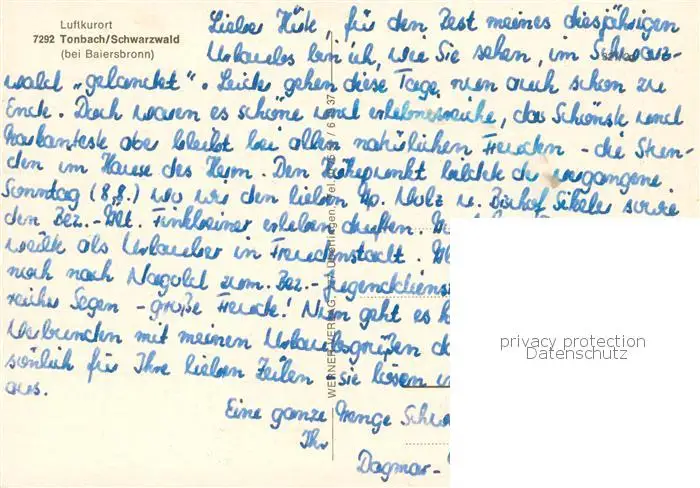 Luftkurort
7292 Tonbach/Schwarzwald
(bei Baiersbronn)
Lieber Hirte, für den Rest meines diesjährigen
Urlaubes bin ich, wie Sie sehen, im Schwarz-
wald "gelandet". Leider gehen diese Tage nun auch schon zu
Ende. Doch waren es schöne und erlebnisreiche, das Schönste und
Markanteste aber bleibt bei allen natürlichen Freuden - die Stun-
den im Hause des Herrn. Den Höhepunkt bildete der vergangene
Sonntag (8.8.) wo wir den lieben Ap. Volz u. Bischof sowie
den Bez.-Ält. Finkbeiner erleben durften.
weilte als Urlauber in Freudenstadt.
noch nach Nagold zum Bez.-Jugenddienst
reicher Segen - große Freude! Nun geht es
Verbunden mit meinen Urlaubsgrüßen
sönlich für Ihre lieben Zeilen, sie lösen
aus.
Eine ganze Menge
Ihr
Dagmar-
WERNER VERLAG, 777 Überlingen
privacy protection
Datenschutz